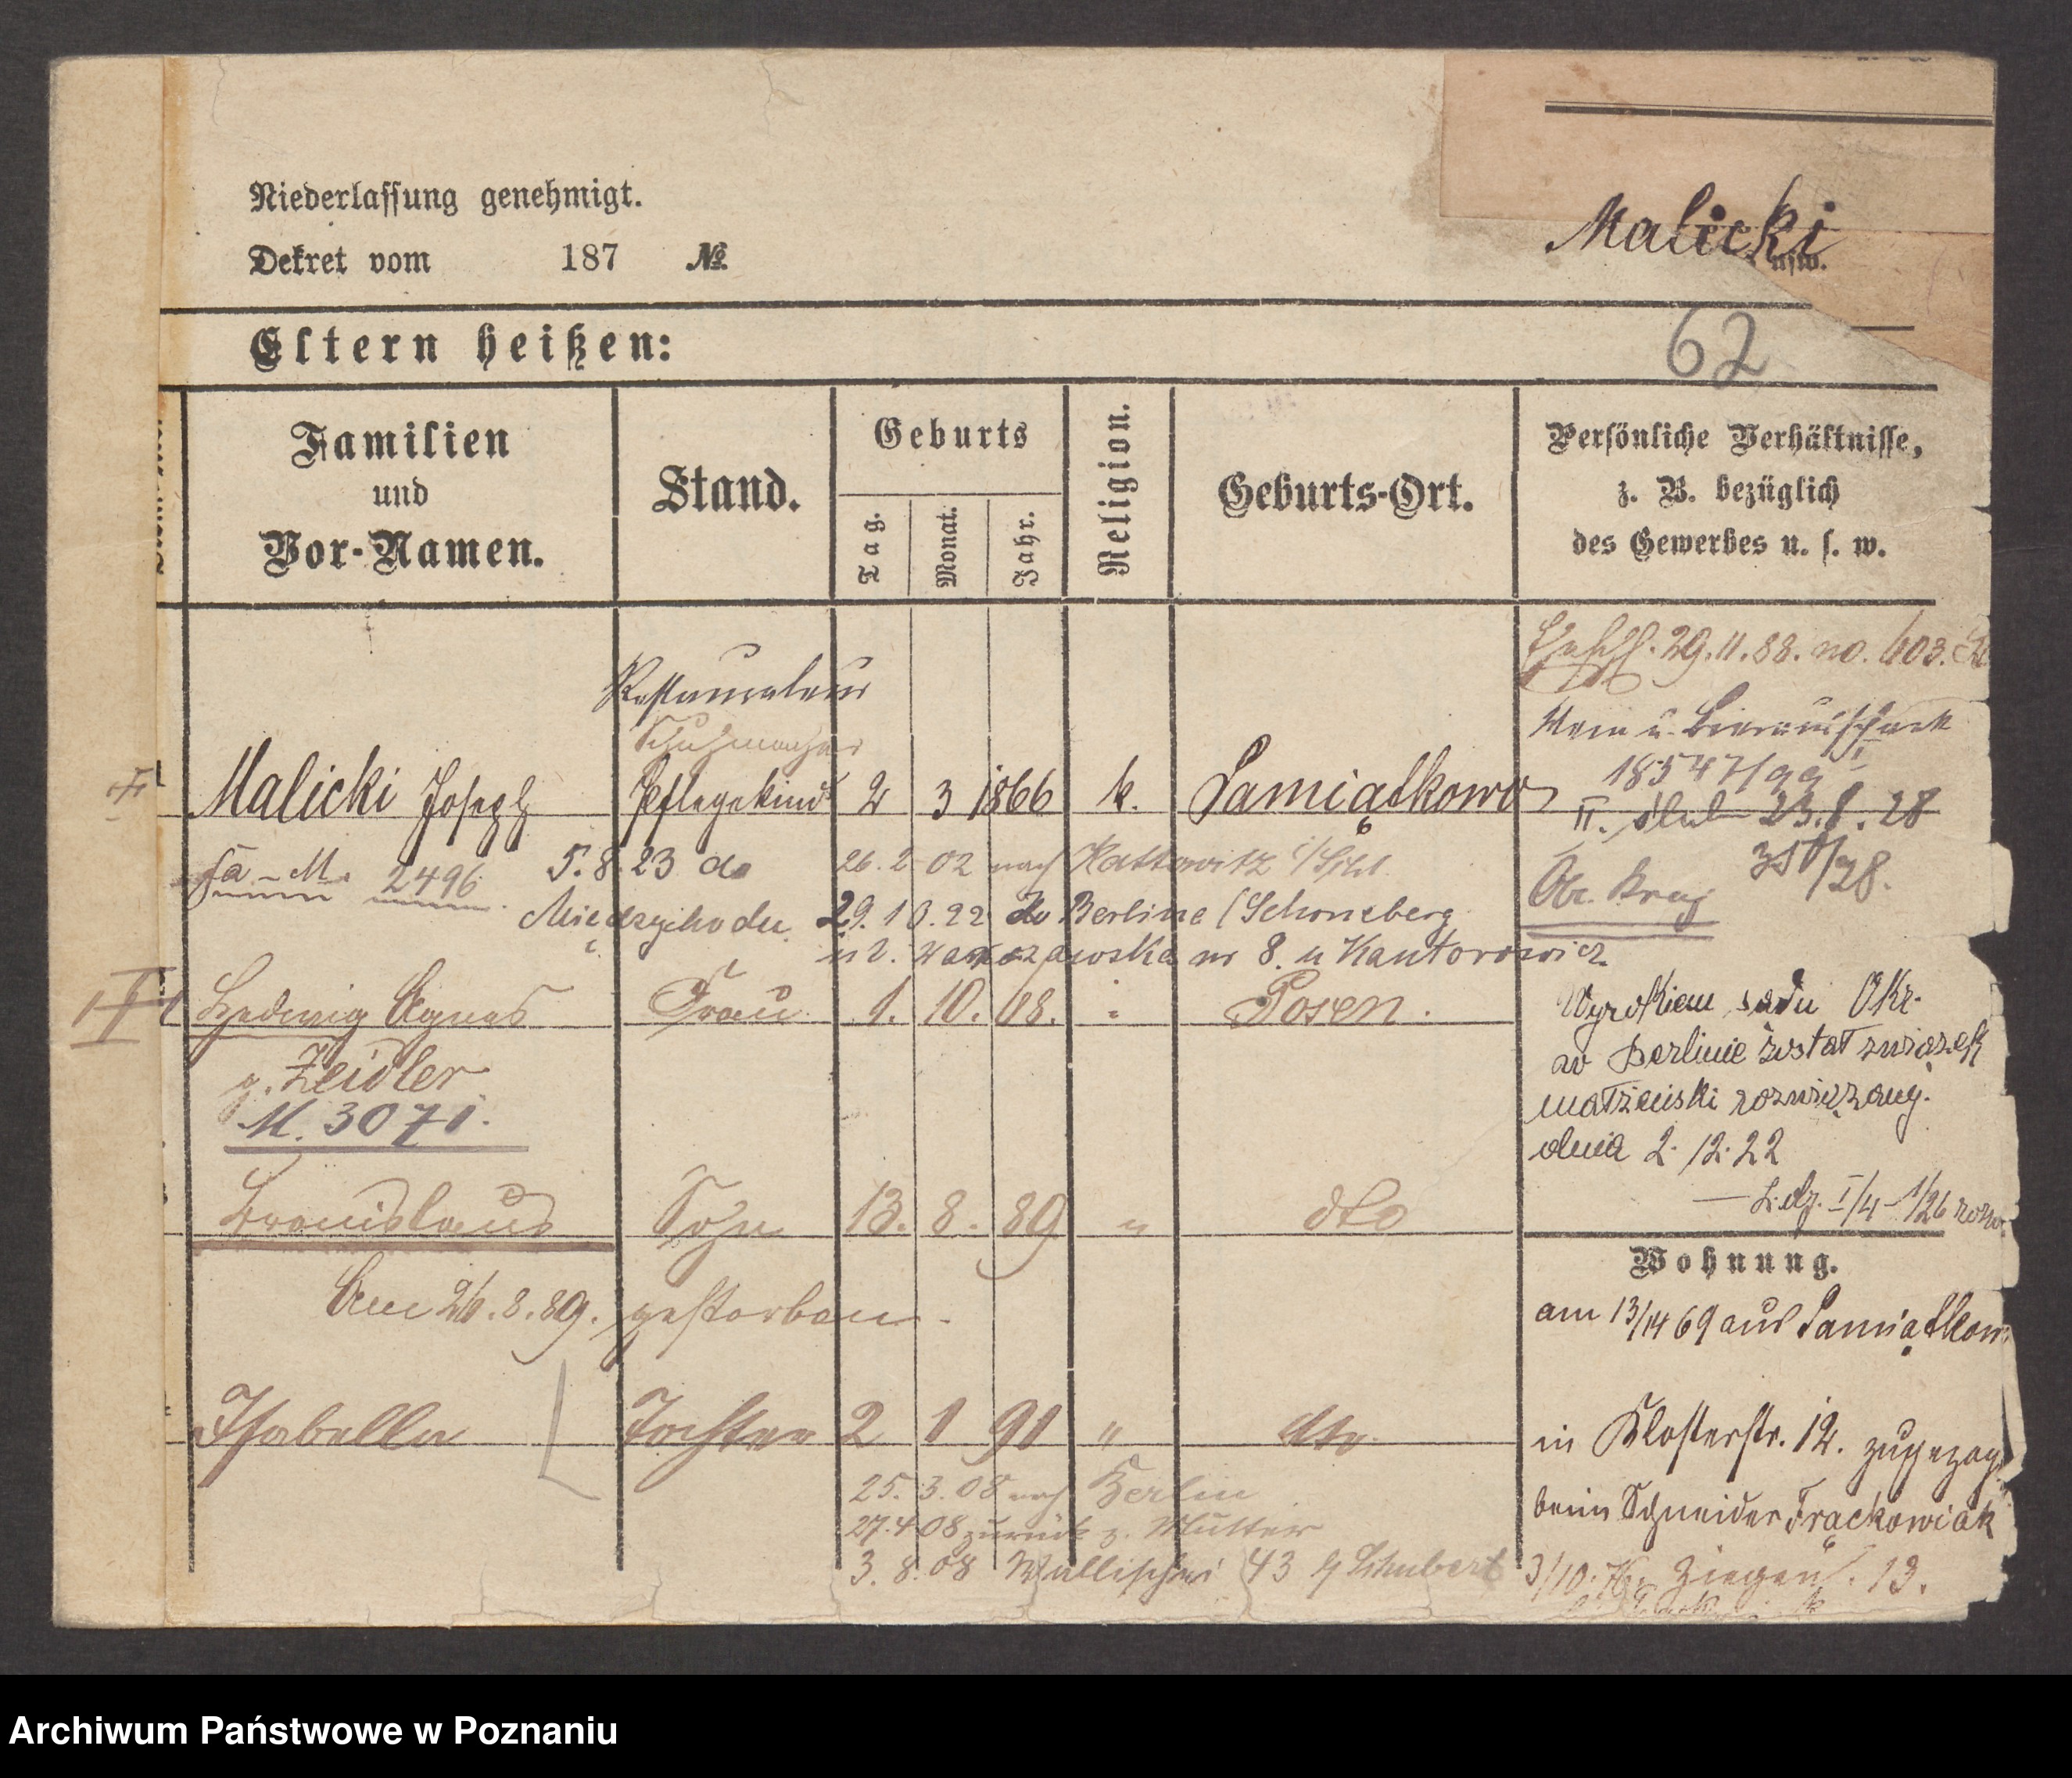 Niederlassung genehmigt.
Dekret vom 187 №
Malicki
usw.
62
Eltern heißen:
Familien und Vor-Namen.
Stand.
Geburts
Tag.
Monat.
Jahr.
Religion.
Geburts-Ort.
Persönliche Verhältnisse,
z. B. bezüglich
des Gewerbes u. s. w.
29.11.88. no. 603.
Restaurateur
Wein u. Bierausschank
Schuhmacher
18547/99
Malicki Joseph Pflegekind 2 3 1866 k. Pamiątkowo
II. ślub 23.8.28
M. 2496 5.8.23 do 26.2 02 nach Kattowitz i/Schl.
Międzychodu 29.10.22 do Berlina /Schoneberg
ul. Warszawska nr 8. u Kantorowicz
Hedwig Agnes Frau 1. 10. 68. Posen.
g. Zeidler
M. 3071.
Wyrokiem sądu Okr.
w Berlinie został związek
małżeński rozwiązany.
dnia 2.12.22
L.dz. I/4 - 1/26
Bronislaus Sohn 13. 8. 89 " dto
Am 26.8.89. gestorben.
Wohnung.
am 13/14 69 aus Pamiątkow
Isabella Tochter 2 1 91 " dto.
in Klosterstr. 12. zugezog
25.3.08 nach Berlin
beim Schneider Frackowiak
27.4 08 zurück z. Mutter
3.8.08 Wallischei 43 Schubert
3/10. 76. Ziegen 13.
Archiwum Państwowe w Poznaniu